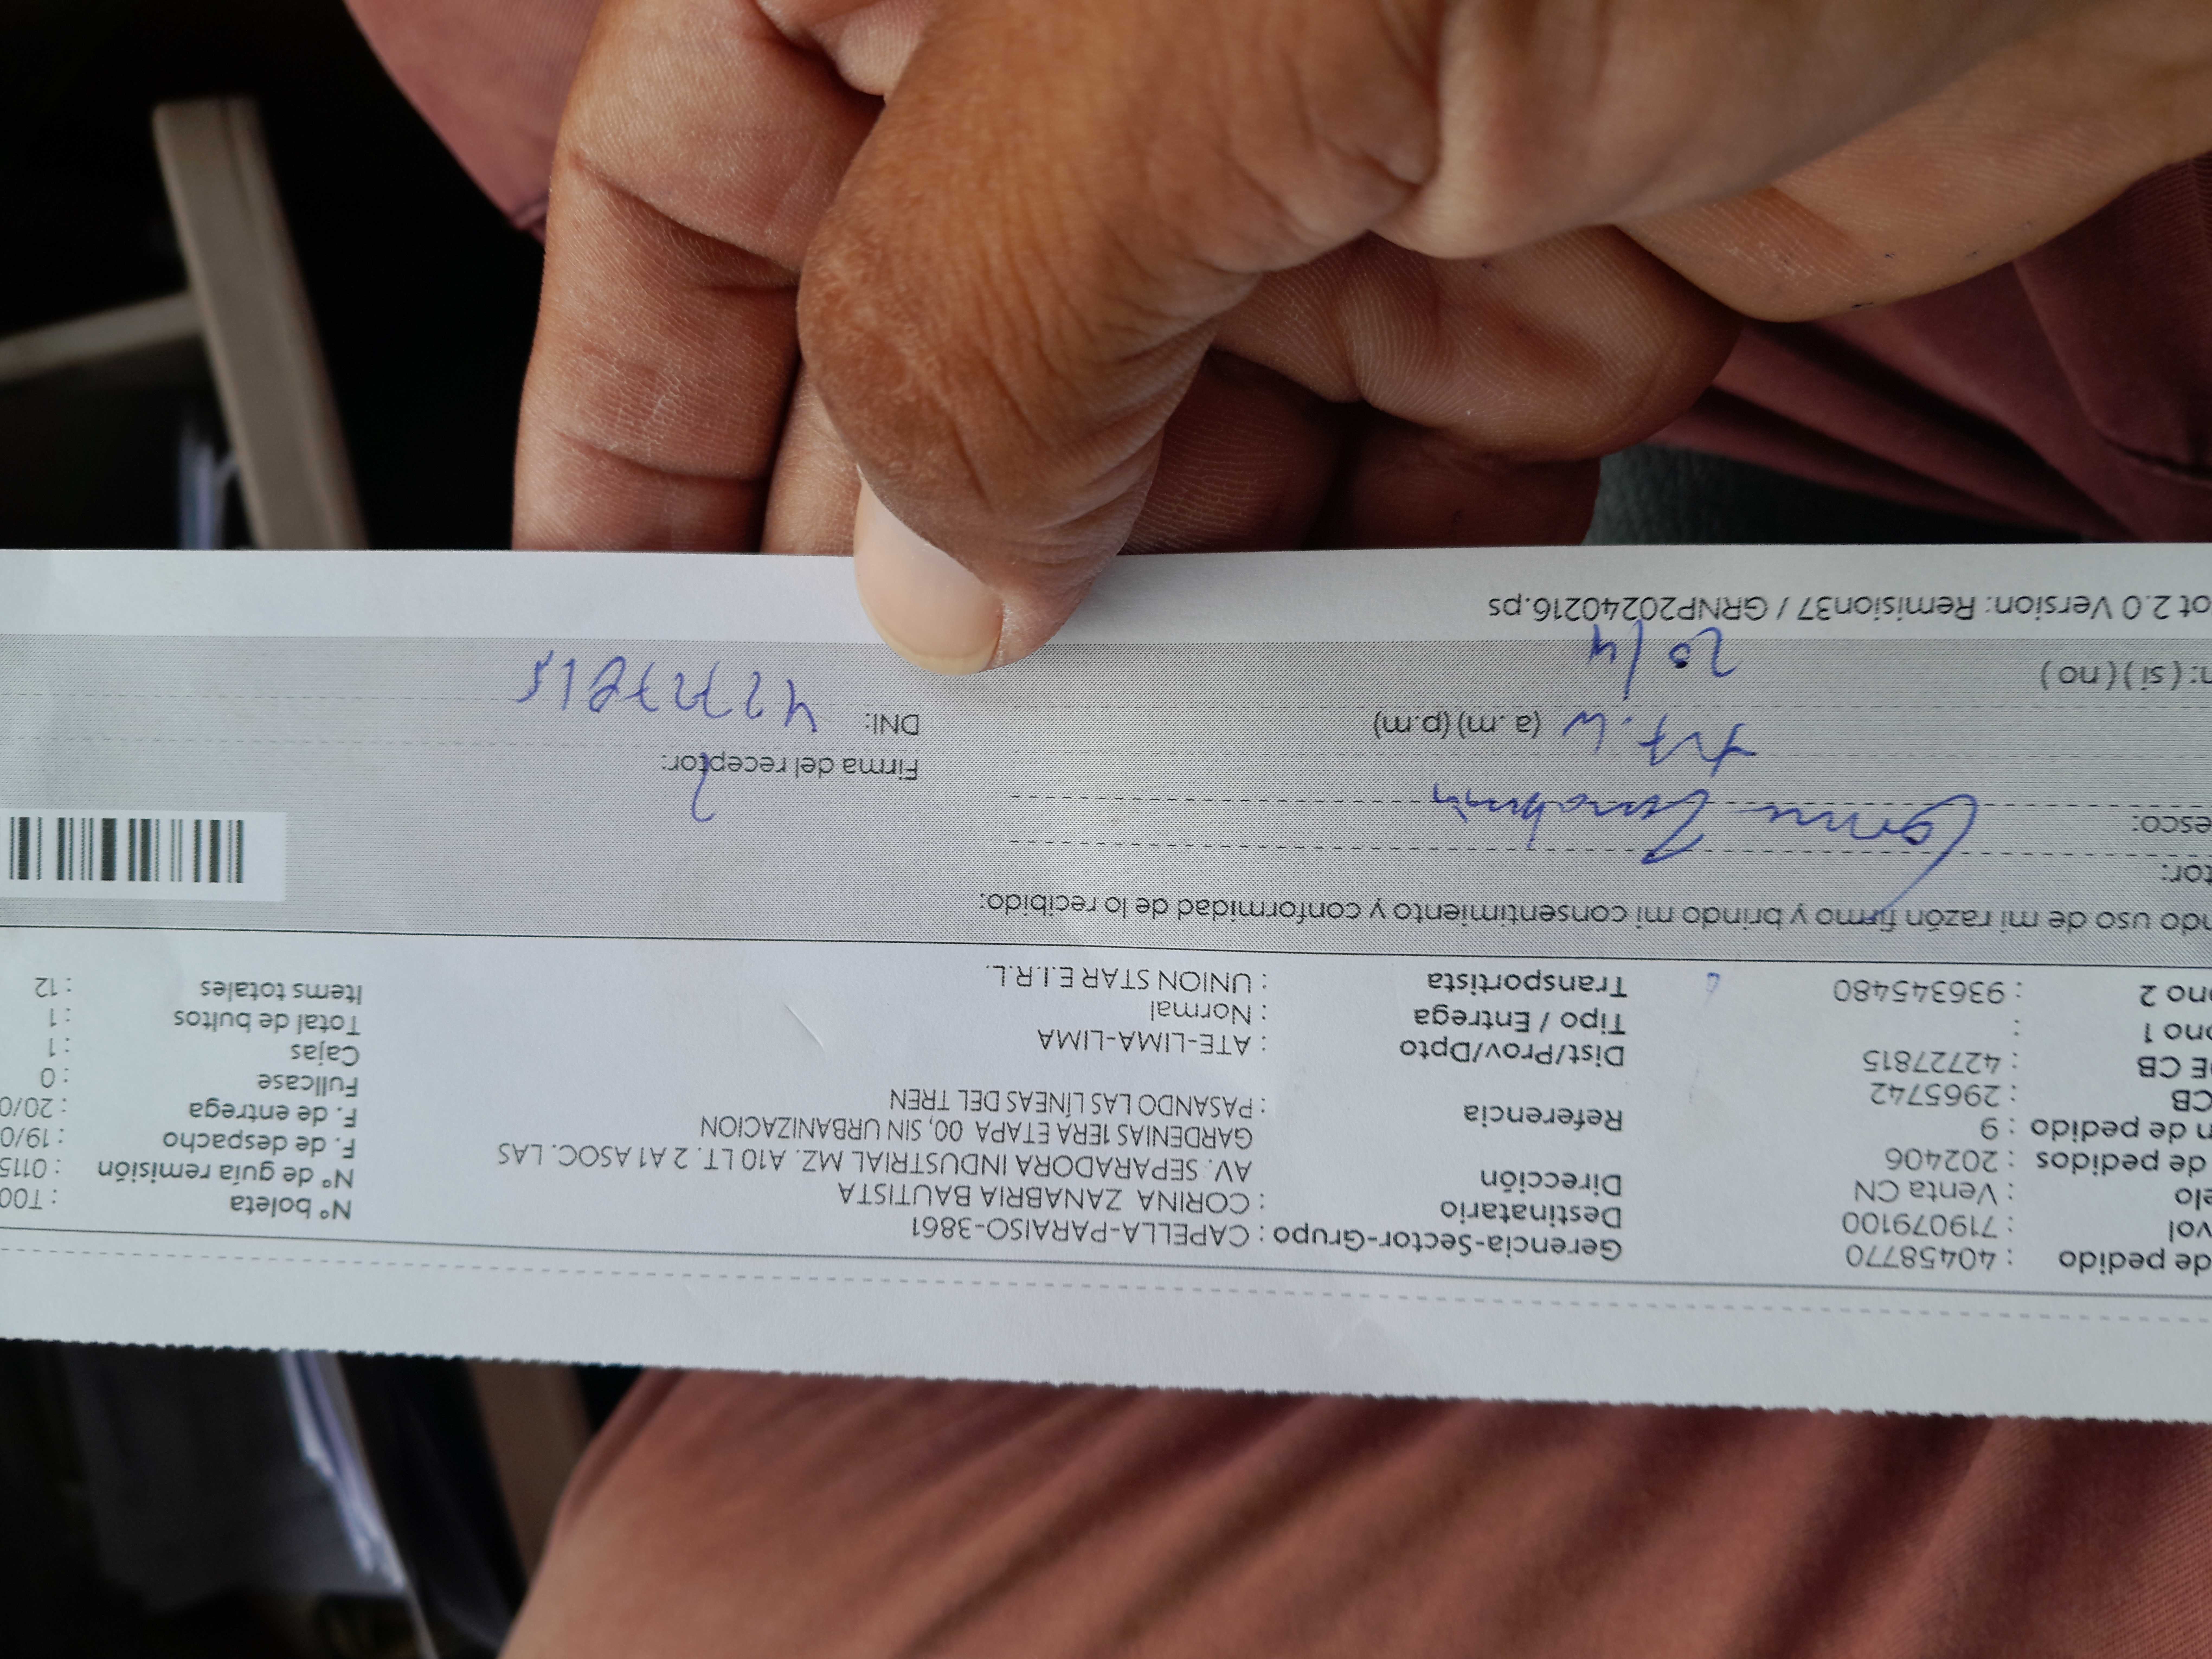 de pedido : 40458770
vol : 719079100
elo : Venta CN
de pedidos : 202406
n de pedido : 9
CB : 2965742
E CB : 42727815
ono 1 :
ono 2 : 936345480
Gerencia-Sector-Grupo : CAPELLA-PARAISO-3861
Destinatario : CORINA ZANABRIA BAUTISTA
Dirección AV. SEPARADORA INDUSTRIAL MZ. A10 LT. 2 A1 ASOC. LAS
GARDENIAS 1ERA ETAPA 00, SIN URBANIZACION
Referencia : PASANDO LAS LÍNEAS DEL TREN
Dist/Prov/Dpto : ATE-LIMA-LIMA
Tipo / Entrega : Normal
Transportista : UNION STAR E.I.R.L.
N° boleta : T00
N° de guía remisión : 0115
F. de despacho : 19/0
F. de entrega : 20/0
Fullcase : 0
Cajas : 1
Total de bultos : 1
Items totales : 12
ndo uso de mi razón firmo y brindo mi consentimiento y conformidad de lo recibido:
tor:
esco:
Firma del receptor:
(a.m) (p.m)
DNI: 42727815
n: ( sí ) ( no )
20/4
ot 2.0 Version: Remision37 / GRNP20240216.ps